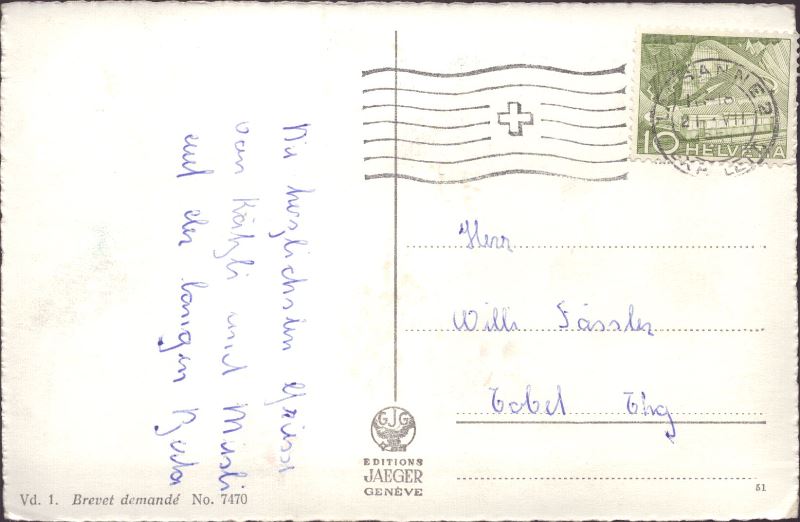 Die herzlichsten Grüsse
von Kätzli und Müsli
und der langen Berta
LAUSANNE 2
21 VII
10 HELVETIA
Herr
Willi Fässler
Tobel Thg
GJG
EDITIONS
JAEGER
GENÈVE
Vd. 1. Brevet demandé No. 7470
51